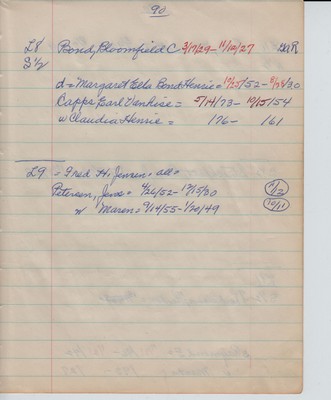 90
L8 Bond, Bloomfield C 3/17/29-11/12/27 GAR
S½
d = Margaret Ella Bond Henrie = 10/25/52-8/28/30
Capps Earl Van Rise = 5/14/73-10/15/54
w Claudia Henrie = 176- 161
L9 = Fred H. Jensen. all =
Petersen, Jens = 4/26/52-12/15/30
w Maren = 9/14/55-1/20/49 10/11